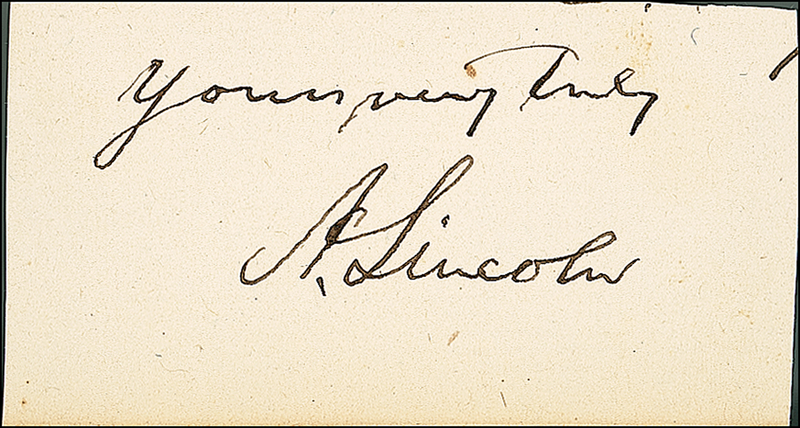 Yours very Truly
A. Lincoln